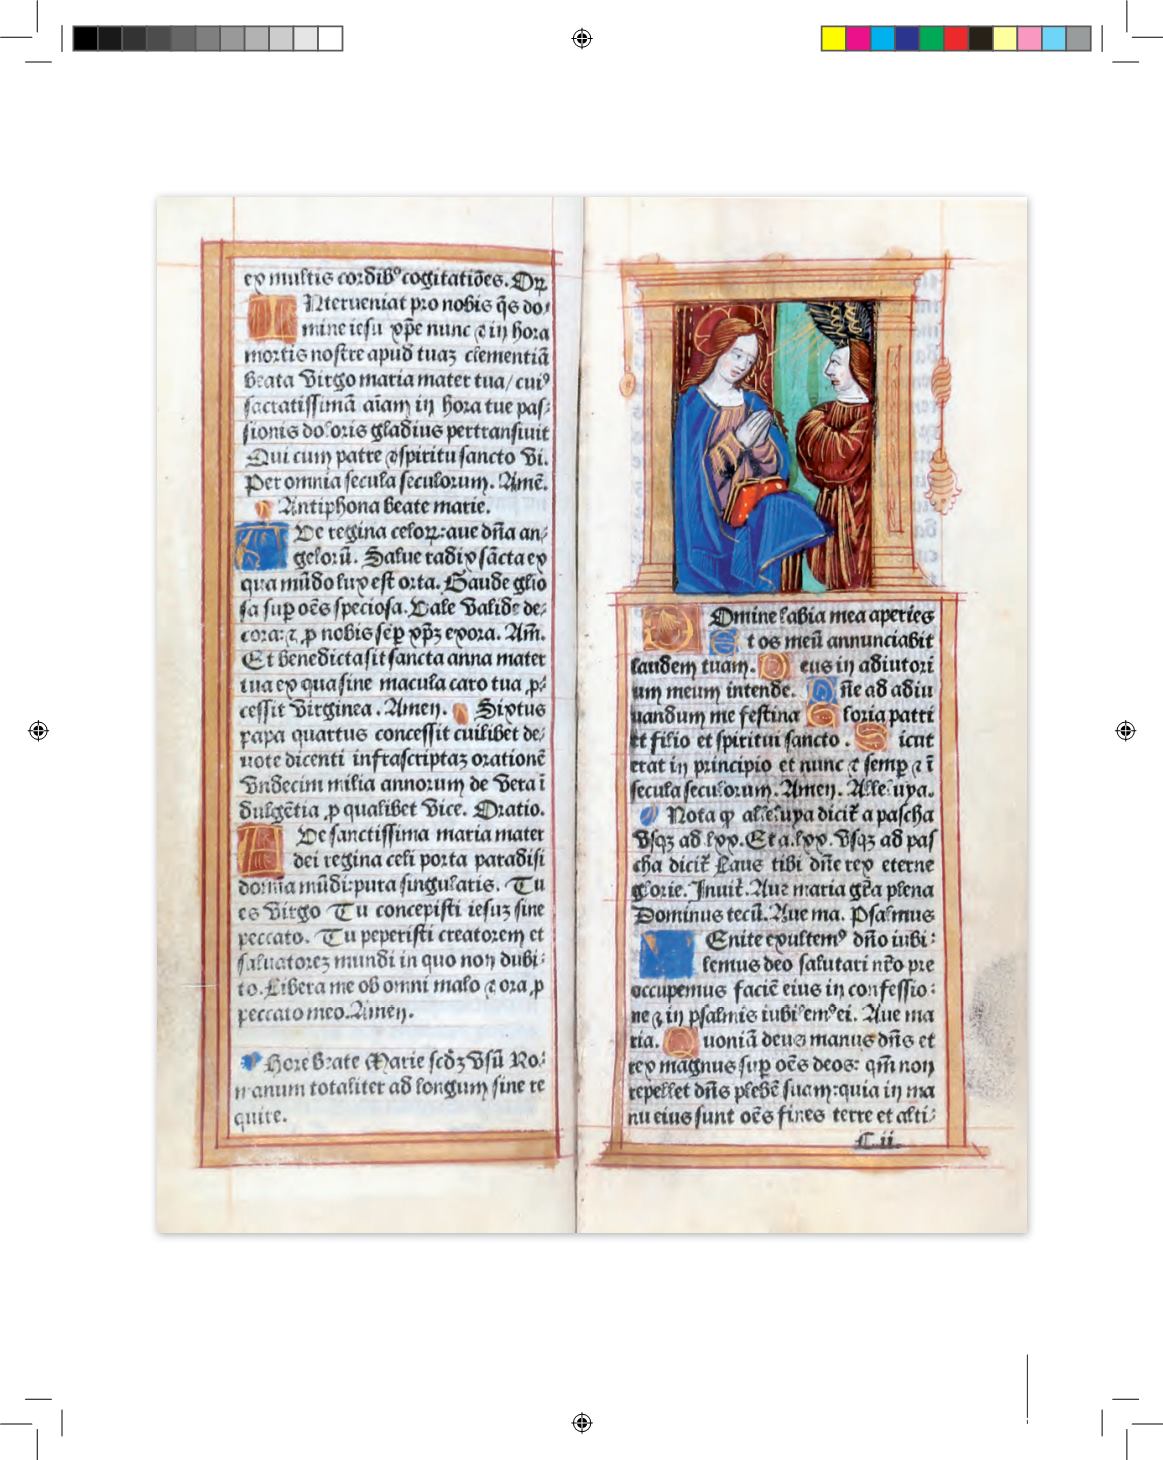 ex multis cordibꝰ cogitatiões. Oꝛ̃
Nterueniat pro nobis q̃s do⸗
mine iesu xp̃e nunc ⁊ in hora
mortis nostre apud tuaꝫ clementiã
beata Virgo maria mater tua/ cuiꝰ
sacratissimã aĩam in hora tue pas⸗
sionis doloris gladius pertransiuit
Qui cum patre ⁊ spiritu sancto Vi.
Per omnia secula seculorum. Amẽ.
Antiphona beate marie.
Ue regina celoꝝ: aue dña an⸗
gelorũ. Salue radix sãcta ex
qua mũdo lux est orta. Gaude glio
sa sup oẽs speciosa. Vale Valide de⸗
cora: ⁊ ꝓ nobis sẽp xp̃ꝫ exora. Am̃.
Et benedicta sit sancta anna mater
tua ex qua sine macula caro tua ꝓ⸗
cessit Virginea. Amen. Sixtus
papa quartus concessit cuilibet de⸗
uote dicenti infrascriptaꝫ orationẽ
Vndecim milia annorum de Vera ĩ
dulgẽtia ꝓ qualibet Vice. Oratio.
Ue sanctissima maria mater
dei regina celi porta paradisi
domina mũdi: pura singularis. Tu
es Virgo Tu concepisti iesuꝫ sine
peccato. Tu peperisti creatorem et
saluatoreꝫ mundi in quo non dubi⸗
to. Libera me ob omni malo ⁊ ora ꝓ
peccato meo. Amen.
Hore beate Marie scd̃ꝫ Vsũ Ro⸗
manum totaliter ad longum sine re
quire.
D Omine labia mea aperies
E t os meũ annunciabit
laudem tuam. D eus in adiutori
um meum intende. D ñe ad adiu
uandum me festina G loria patri
et filio et spiritui sancto. S icut
erat in principio et nunc ⁊ semp ⁊ ĩ
secula seculorum. Amen. Alleluya.
Nota ꝙ alleluya dicit̃ a pascha
Vsqꝫ ad lxx. Et a. lxx. Vsqꝫ ad pas
cha dicit̃ Laus tibi dñe rex eterne
glorie. Inuit̃. Aue maria gr̃a plena
Dominus tecũ. Aue ma. Psalmus
Enite exultemꝰ dño iubi⸗
lemus deo salutari nr̃o pre
occupemus faciẽ eius in confessio⸗
ne ⁊ in psalmis iubilemꝰ ei. Aue ma
ria. Q uoniã deus manus dñs et
rex magnus sup oẽs deos: qm̃ non
repellet dñs plebẽ suam: quia in ma
nu eius sunt oẽs fines terre et alti⸗
C.ii.